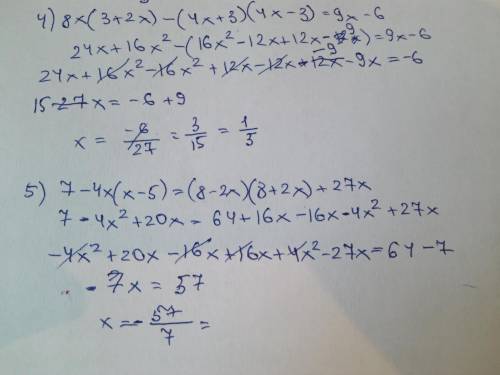 4) 8x(3+2x)-(4x+3)(4x-3)=9x-6
24x+16x²-(16x²-12x+12x-9)=9x-6
24x+16x²-16x²+12x-12x+9-9x=-6
15x=-6+9
x = = 3/15 = 1/5
5) 7-4x(x-5)=(8-2x)(8+2x)+27x
7-4x²+20x=64+16x-16x-4x²+27x
-4x²+20x-16x+16x+4x²-27x=64-7
-7x=57
x=-57/7=